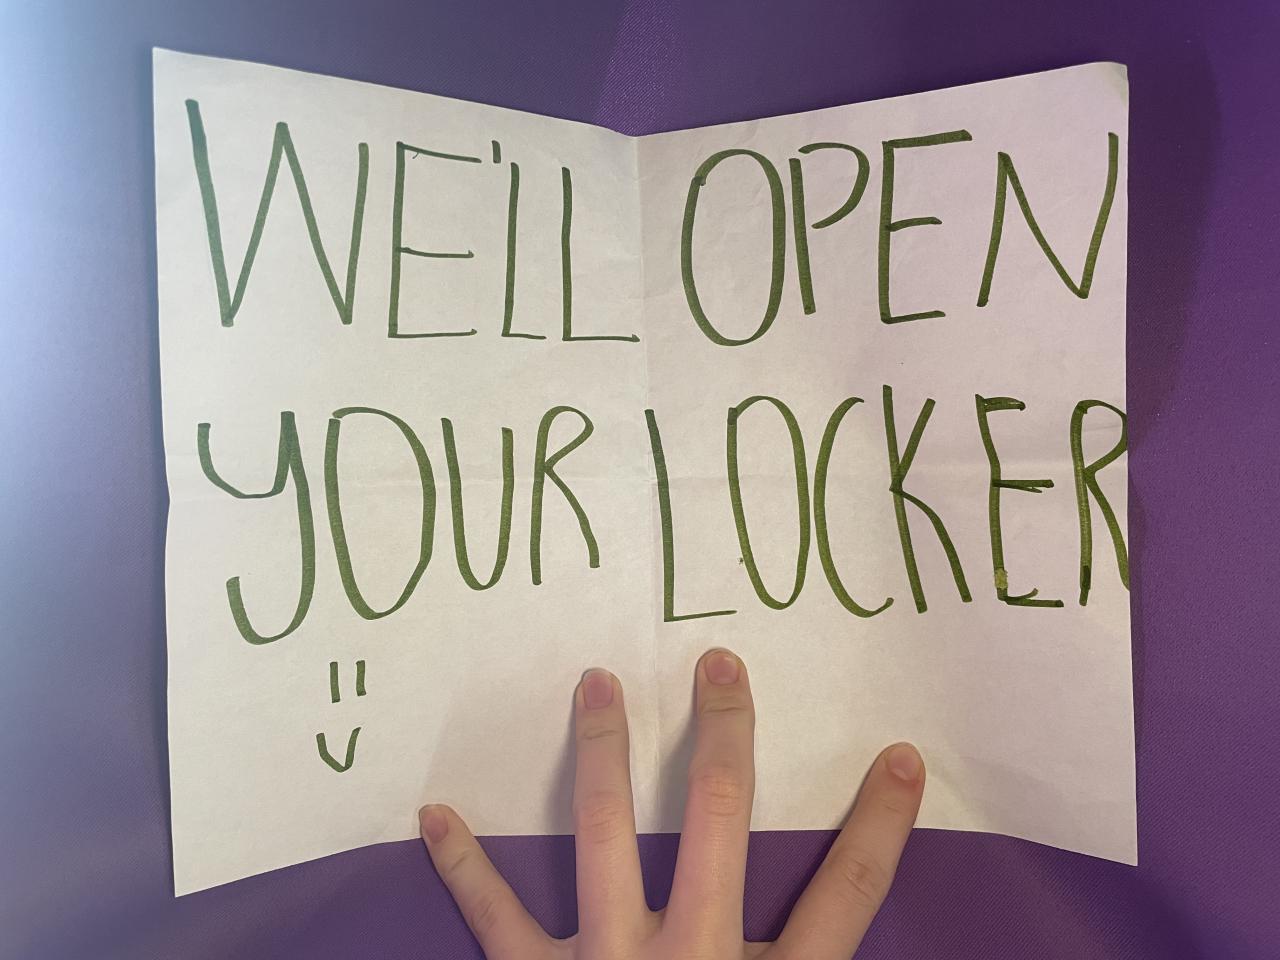 WE'LL OPEN
YOUR LOCKER